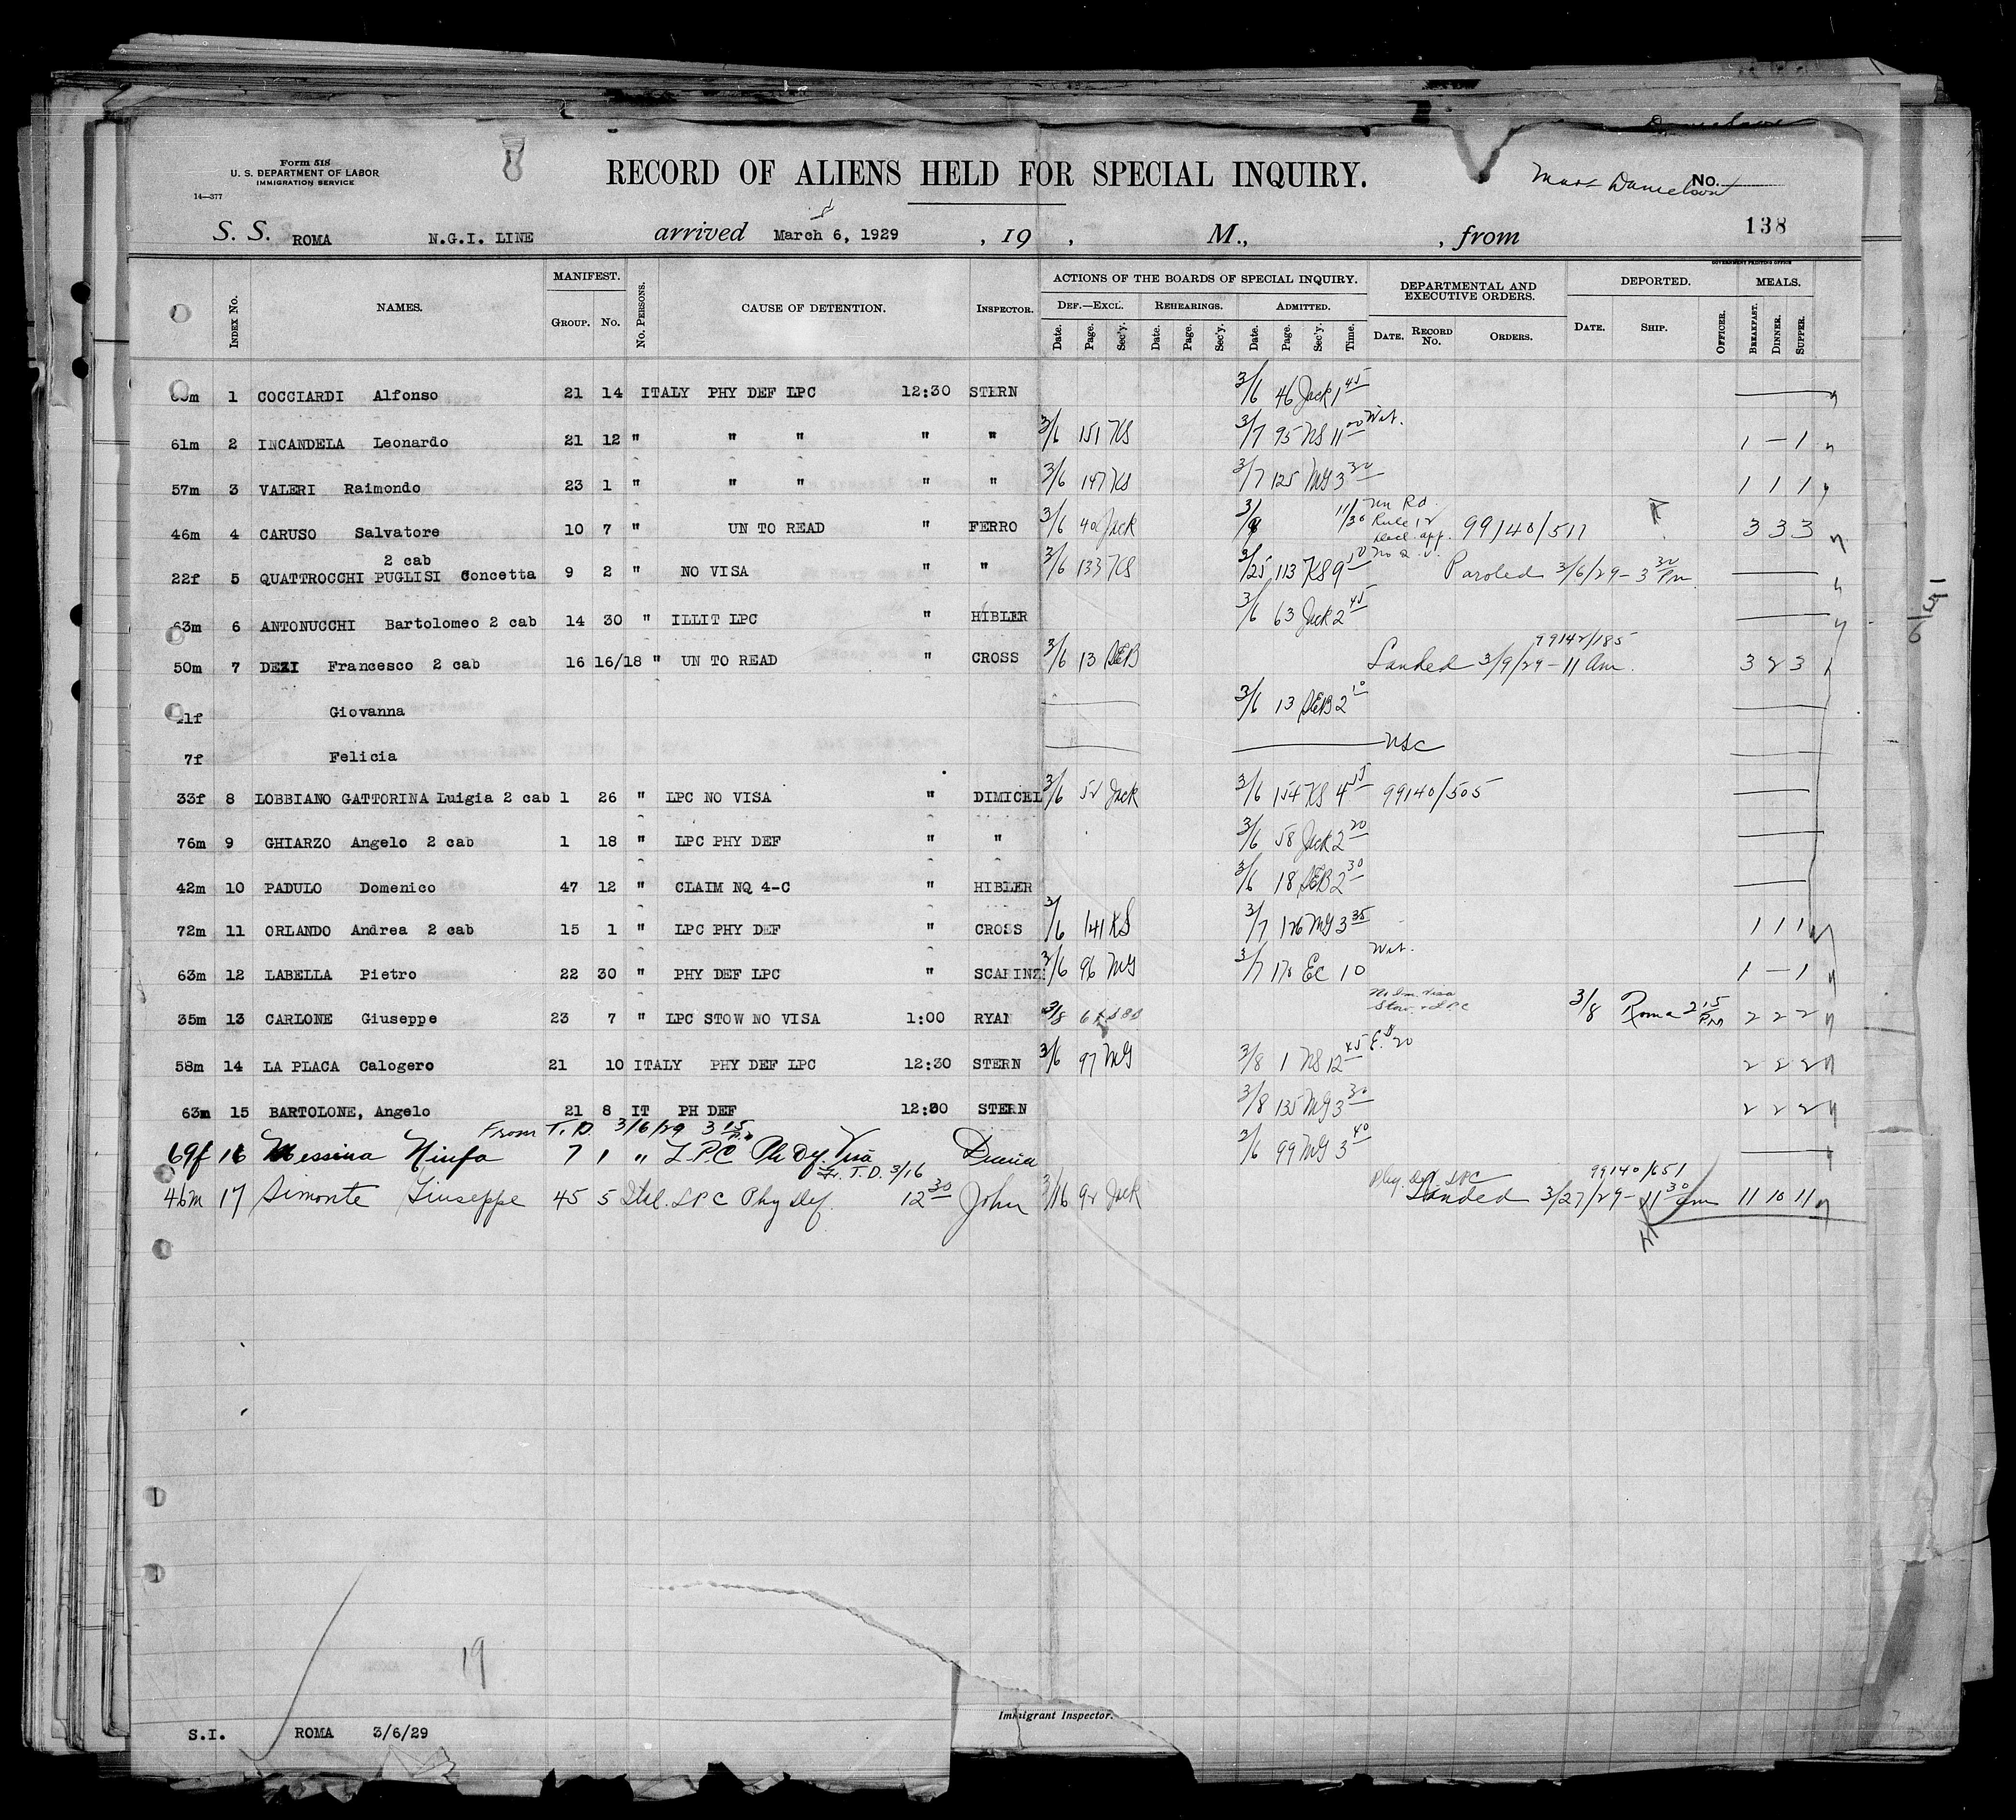 Form 518
U. S. DEPARTMENT OF LABOR
IMMIGRATION SERVICE
14—377
RECORD OF ALIENS HELD FOR SPECIAL INQUIRY.
No.
138
S. S. ROMA N.G.I. LINE arrived March 6, 1929 , 19 , M., , from
GOVERNMENT PRINTING OFFICE
INDEX NO. NAMES. MANIFEST. GROUP. NO. NO. PERSONS. CAUSE OF DETENTION. INSPECTOR. ACTIONS OF THE BOARDS OF SPECIAL INQUIRY. DEPARTMENTAL AND EXECUTIVE ORDERS. DEPORTED. MEALS.
DEF.—EXCL. REHEARINGS. ADMITTED.
Date. Page. Sec'y. Date. Page. Sec'y. Date. Page. Sec'y. Time. DATE. RECORD NO. ORDERS. DATE. SHIP. OFFICER. BREAKFAST. DINNER. SUPPER.
m 1 COCCIARDI Alfonso 21 14 ITALY PHY DEF LPC 12:30 STERN 3/6 46 Jack 1 45
61m 2 INCANDELA Leonardo 21 12 " " " " " 3/6 151 KS 3/7 95 NS 11 00 1 — 1
57m 3 VALERI Raimondo 23 1 " " " " " 3/6 147 KS 3/7 125 MG 3 30 1 1 1
46m 4 CARUSO Salvatore 10 7 " UN TO READ " FERRO 3/6 40 Jack 11/30 Un Rd. Rule 12 99140/511 3 3 3
2 cab
22f 5 QUATTROCCHI PUGLISI Concetta 9 2 " NO VISA " " 3/6 133 KS 3/25 113 KS 9 10 Paroled 3/6/29 - 3 30 Pm
63m 6 ANTONUCCHI Bartolomeo 2 cab 14 30 " ILLIT LPC " HIBLER 3/6 63 Jack 2 45
99142/185
50m 7 DEZI Francesco 2 cab 16 16/18 " UN TO READ " CROSS 3/6 13 SEB Landed 3/9/29 - 11 am. 3 2 3
1f Giovanna 3/6 13 SEB 2 10
7f Felicia
33f 8 LOBBIANO GATTORINA Luigia 2 cab 1 26 " LPC NO VISA " DIMICEL 3/6 52 Jack 3/6 154 KS 4 15 99140/505
76m 9 GHIARZO Angelo 2 cab 1 18 " LPC PHY DEF " " 3/6 58 Jack 2 20
42m 10 PADULO Domenico 47 12 " CLAIM NQ 4-C " HIBLER 3/6 18 SEB 2 30
72m 11 ORLANDO Andrea 2 cab 15 1 " LPC PHY DEF " CROSS 3/6 141 KS 3/7 126 MG 3 35 1 1 1
63m 12 LABELLA Pietro 22 30 " PHY DEF LPC " SCARINZ 3/6 96 MG 3/7 170 EC 10 1 — 1
35m 13 CARLONE Giuseppe 23 7 " LPC STOW NO VISA 1:00 RYAN 3/8 No Im. Visa Stow. LPC 3/8 Roma 2 15 PM 2 2 2
58m 14 LA PLACA Calogero 21 10 ITALY PHY DEF LPC 12:30 STERN 3/6 97 MG 3/8 1 NS 12 45 2 2 2
63m 15 BARTOLONE, Angelo 21 8 IT PH DEF 12:00 STERN 3/8 135 MG 3 30 2 2 2
From T.D. 3/6/29 3 15
69f 16 Messina Ninfa 7 1 " L.P.C Ph Def. Visa 3/6 99 MG 3 40
Fr. T.D. 3/16
Phy. Def. LPC 99140/651
46m 17 Simonte Giuseppe 45 5 Ital. LPC Phy Def. 12 30 John 3/16 92 Jack Landed 3/27/29 - 11 30 am 11 10 11
19
Immigrant Inspector.
S.I. ROMA 3/6/29